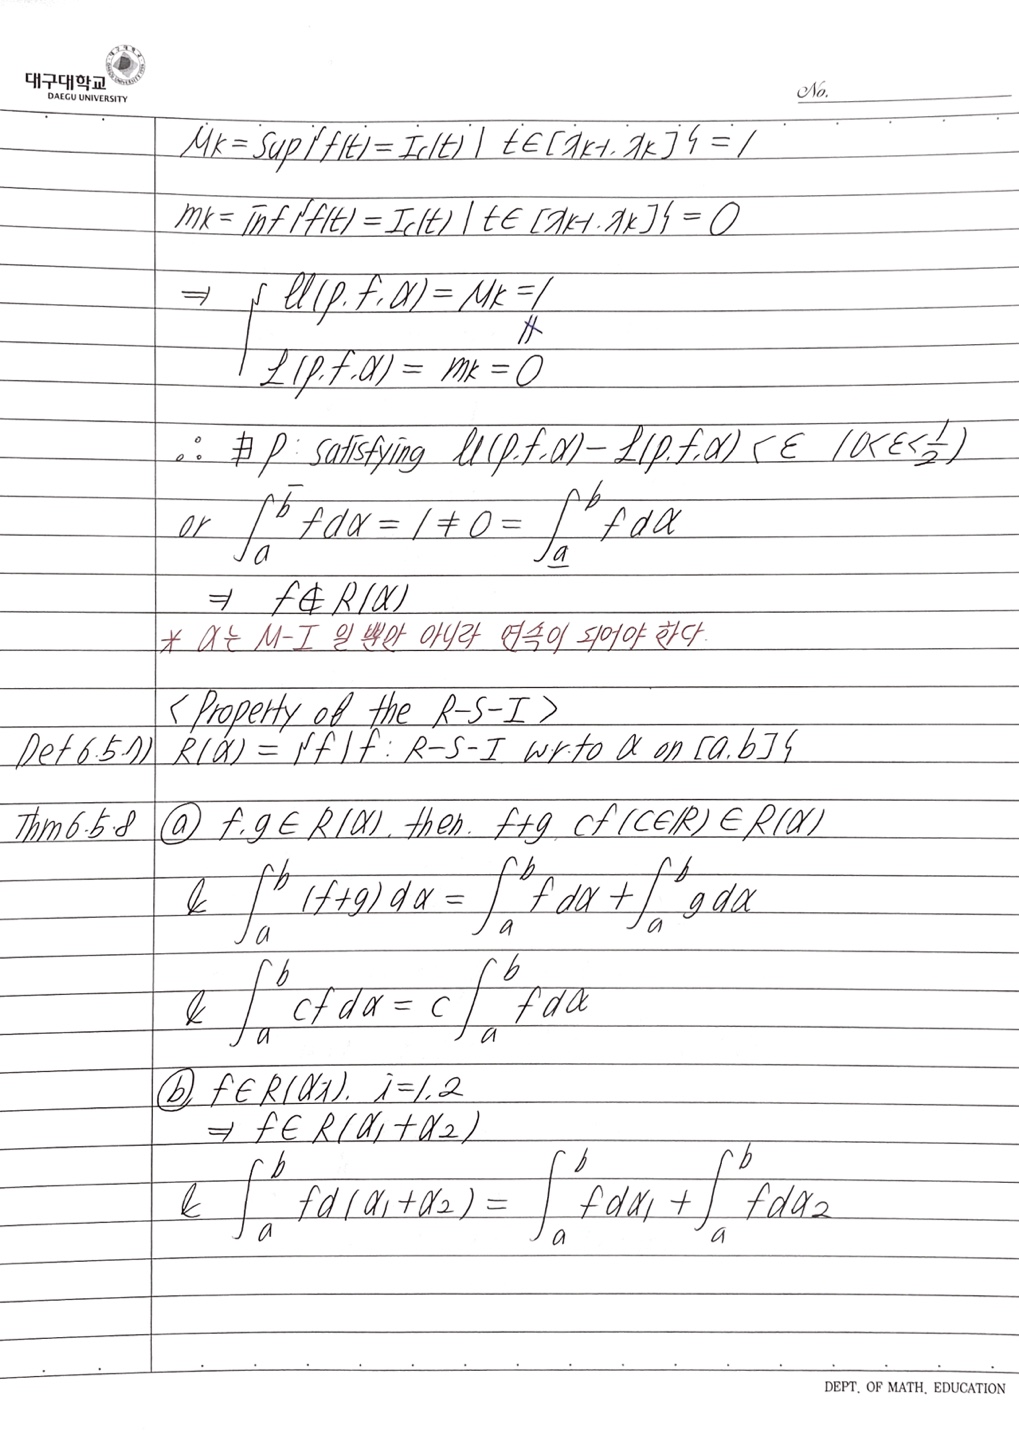 대구대학교
DAEGU UNIVERSITY
No.
Mk = Sup{f(t) = Ic(t) | t∈[xk-1, xk]} = 1
mk = inf{f(t) = Ic(t) | t∈[xk-1, xk]} = 0
⇒ { U(p, f, α) = Mk = 1
≠
L(p, f, α) = mk = 0
∴ ∄ p: satisfying U(p, f, α) - L(p, f, α) < ε (0<ε<1/2)
or ∫̅ₐᵇ f dα = 1 ≠ 0 = ∫̲ₐᵇ f dα
⇒ f ∉ R(α)
* α는 M-I 일 뿐만 아니라 연속이 되어야 한다.
<Property of the R-S-I>
Def 6.5.7) R(α) = {f | f : R-S-I w.r.to α on [a, b]}
Thm 6.5.8 ⓐ f, g ∈ R(α), then, f+g, cf (C∈ℝ) ∈ R(α)
& ∫ₐᵇ (f+g) dα = ∫ₐᵇ f dα + ∫ₐᵇ g dα
& ∫ₐᵇ cf dα = c ∫ₐᵇ f dα
ⓑ f ∈ R(αi), i=1, 2
⇒ f ∈ R(α₁+α₂)
& ∫ₐᵇ fd(α₁+α₂) = ∫ₐᵇ fdα₁ + ∫ₐᵇ fdα₂
DEPT. OF MATH. EDUCATION